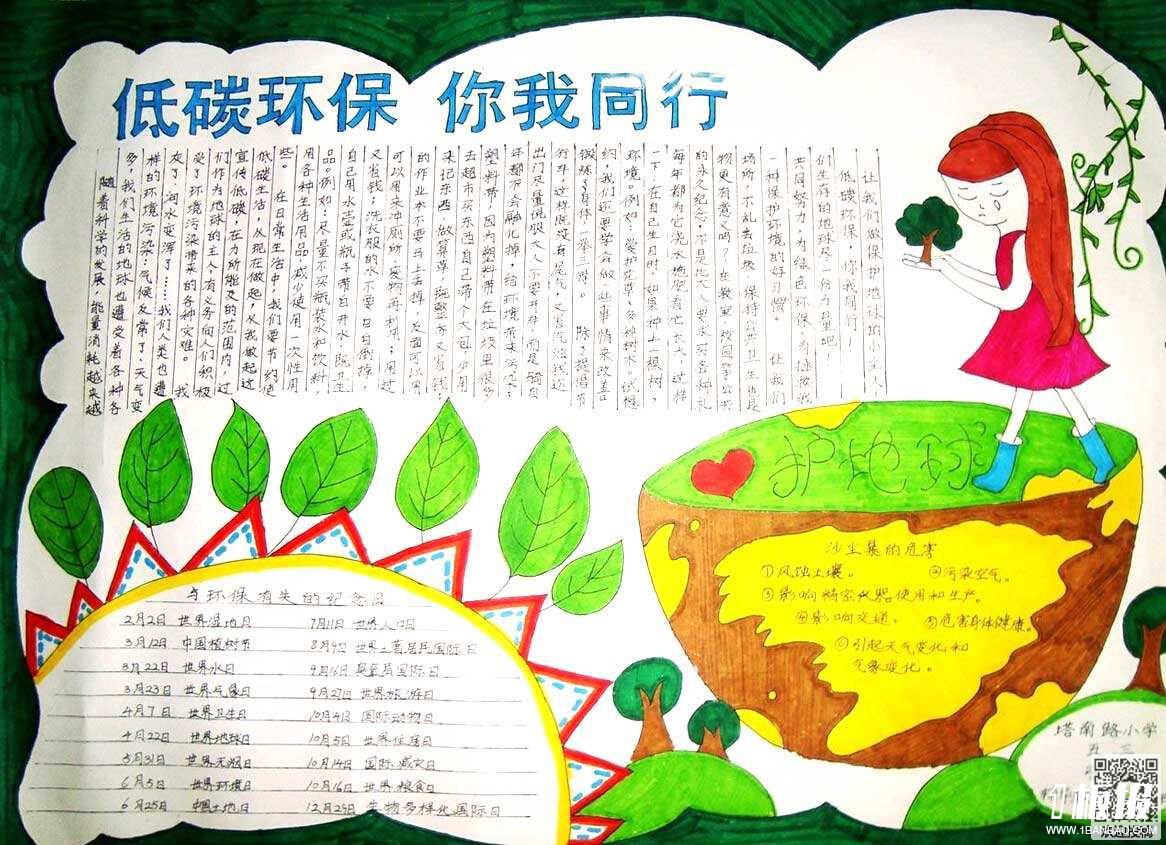 低碳环保 你我同行
随着科学的发展，能量消耗越来越
多，我们生活的地球也遭受着各种
样的环境污染：气候反常了，天气变
灰了，河水变浑了……我们人类也遭
受了环境污染带来的各种灾难。 我
们作为地球的主人有义务向人们积极
宣传低碳，在力所能及的范围内，过
低碳生活，从现在做起，从我做起这
些。 在日常生活中，我们要节约使
用各种生活用品，减少使用一次性用
品。例如：尽量不买瓶装水和饮料，
自己用水壶或瓶子带自开水，既卫生
又省钱；洗衣服的水不要日日倒掉，
可以用来冲厕所，废物再利用；用过
的作业本不要马上丢掉，反面可以用
来记东西，做草算，既整齐又省钱；
去超市买东西自己带个大包，少用
塑料带，因为塑料带在垃圾里很多
年都不会融化掉，给环境带来污染；
出门尽量说服大人不要开车，而是骑自
行车，这样既没有尾气，又省汽油钱还
锻炼了身体，一举三得。 除了提倡节
约，我们还要学会做一些事情来改善
环境。例如：爱护花草，多种树木。试想
一下，在自己生日时，如果种上一棵树，
每年都为它浇水施肥看它长大，这样
的永久纪念，不是比大人要求买各种礼
物更有意义吗？在教室、校园等公共
场所，不乱丢垃圾，保持公共卫生也是
一种保护环境的好习惯。 让我们
共同努力，为绿色环保，为拯救我
们生存的地球尽一份力量吧！
低碳环保，你我同行！
让我们做保护地球的小主人，
护地球
沙尘暴的危害
①风蚀土壤。 ②污染空气。
③影响精密仪器使用和生产。
④影响交通。 ⑤危害身体健康。
⑥引起天气变化和
气象变化。
与环保有关的纪念日
2月2日 世界湿地日 7月11日 世界人口日
3月12日 中国植树节 8月9日 世界土著居民国际日
3月22日 世界水日 9月16日 臭氧层国际日
3月23日 世界气象日 9月27日 世界旅游日
4月7日 世界卫生日 10月4日 国际动物日
4月22日 世界地球日 10月5日 世界住房日
5月31日 世界无烟日 10月14日 国际减灾日
6月5日 世界环境日 10月16日 世界粮食日
6月25日 中国土地日 12月29日 生物多样化国际日
塔南路小学
五 三
1板报
WWW.1BANBAO.COM